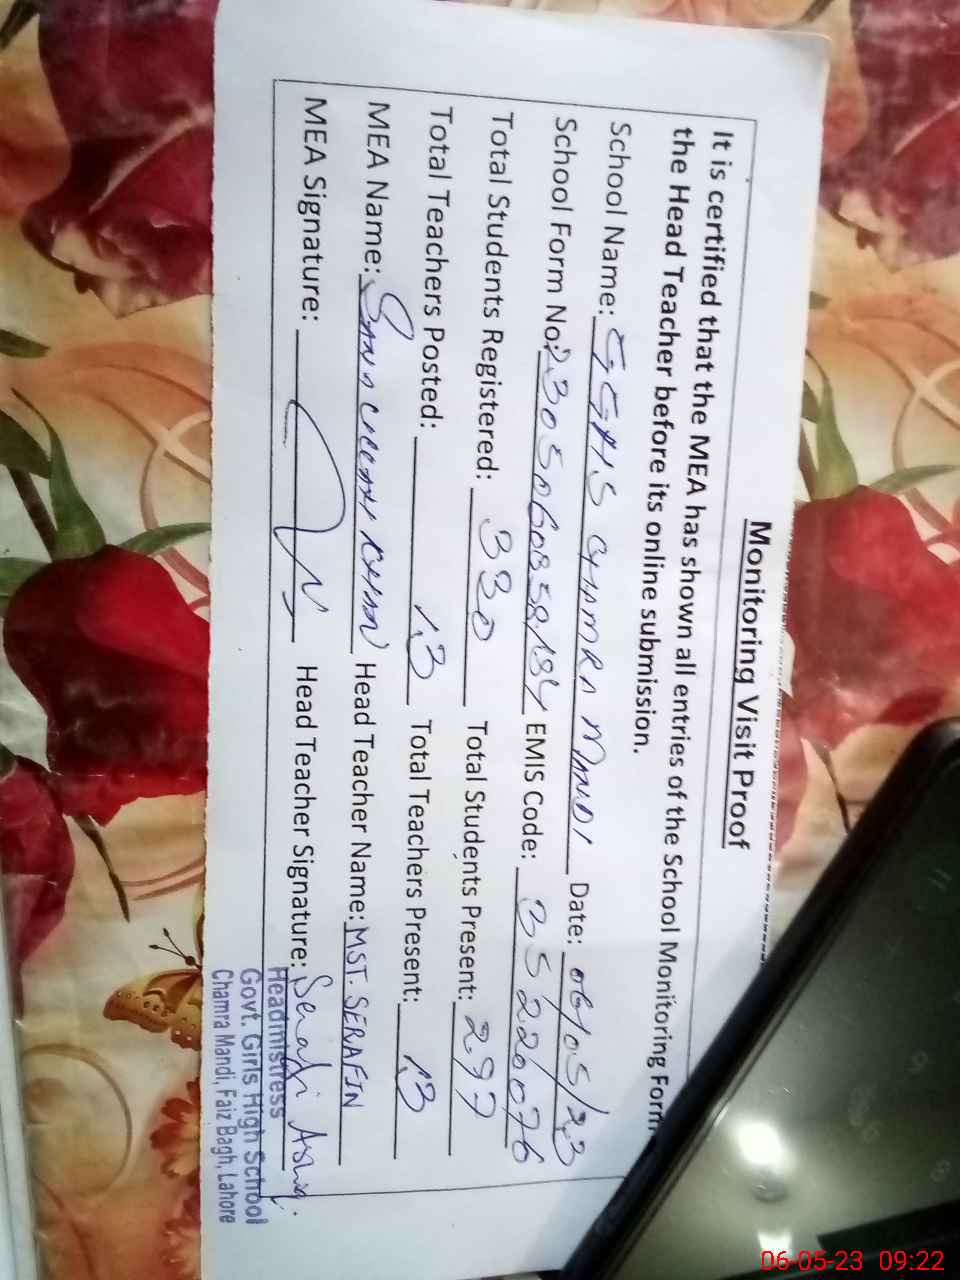 Monitoring Visit Proof
It is certified that the MEA has shown all entries of the School Monitoring Form
the Head Teacher before its online submission.
School Name: GGHS CHAMRA MANDI Date: 06/05/23
School Form No: EMIS Code: 35220076
Total Students Registered: 330 Total Students Present: 297
Total Teachers Posted: 13 Total Teachers Present: 13
MEA Name: KHAN Head Teacher Name: MST. SERAFIN
MEA Signature: Head Teacher Signature:
Headmistress
Govt. Girls High School
Chamra Mandi, Faiz Bagh, Lahore
06-05-23 09:22